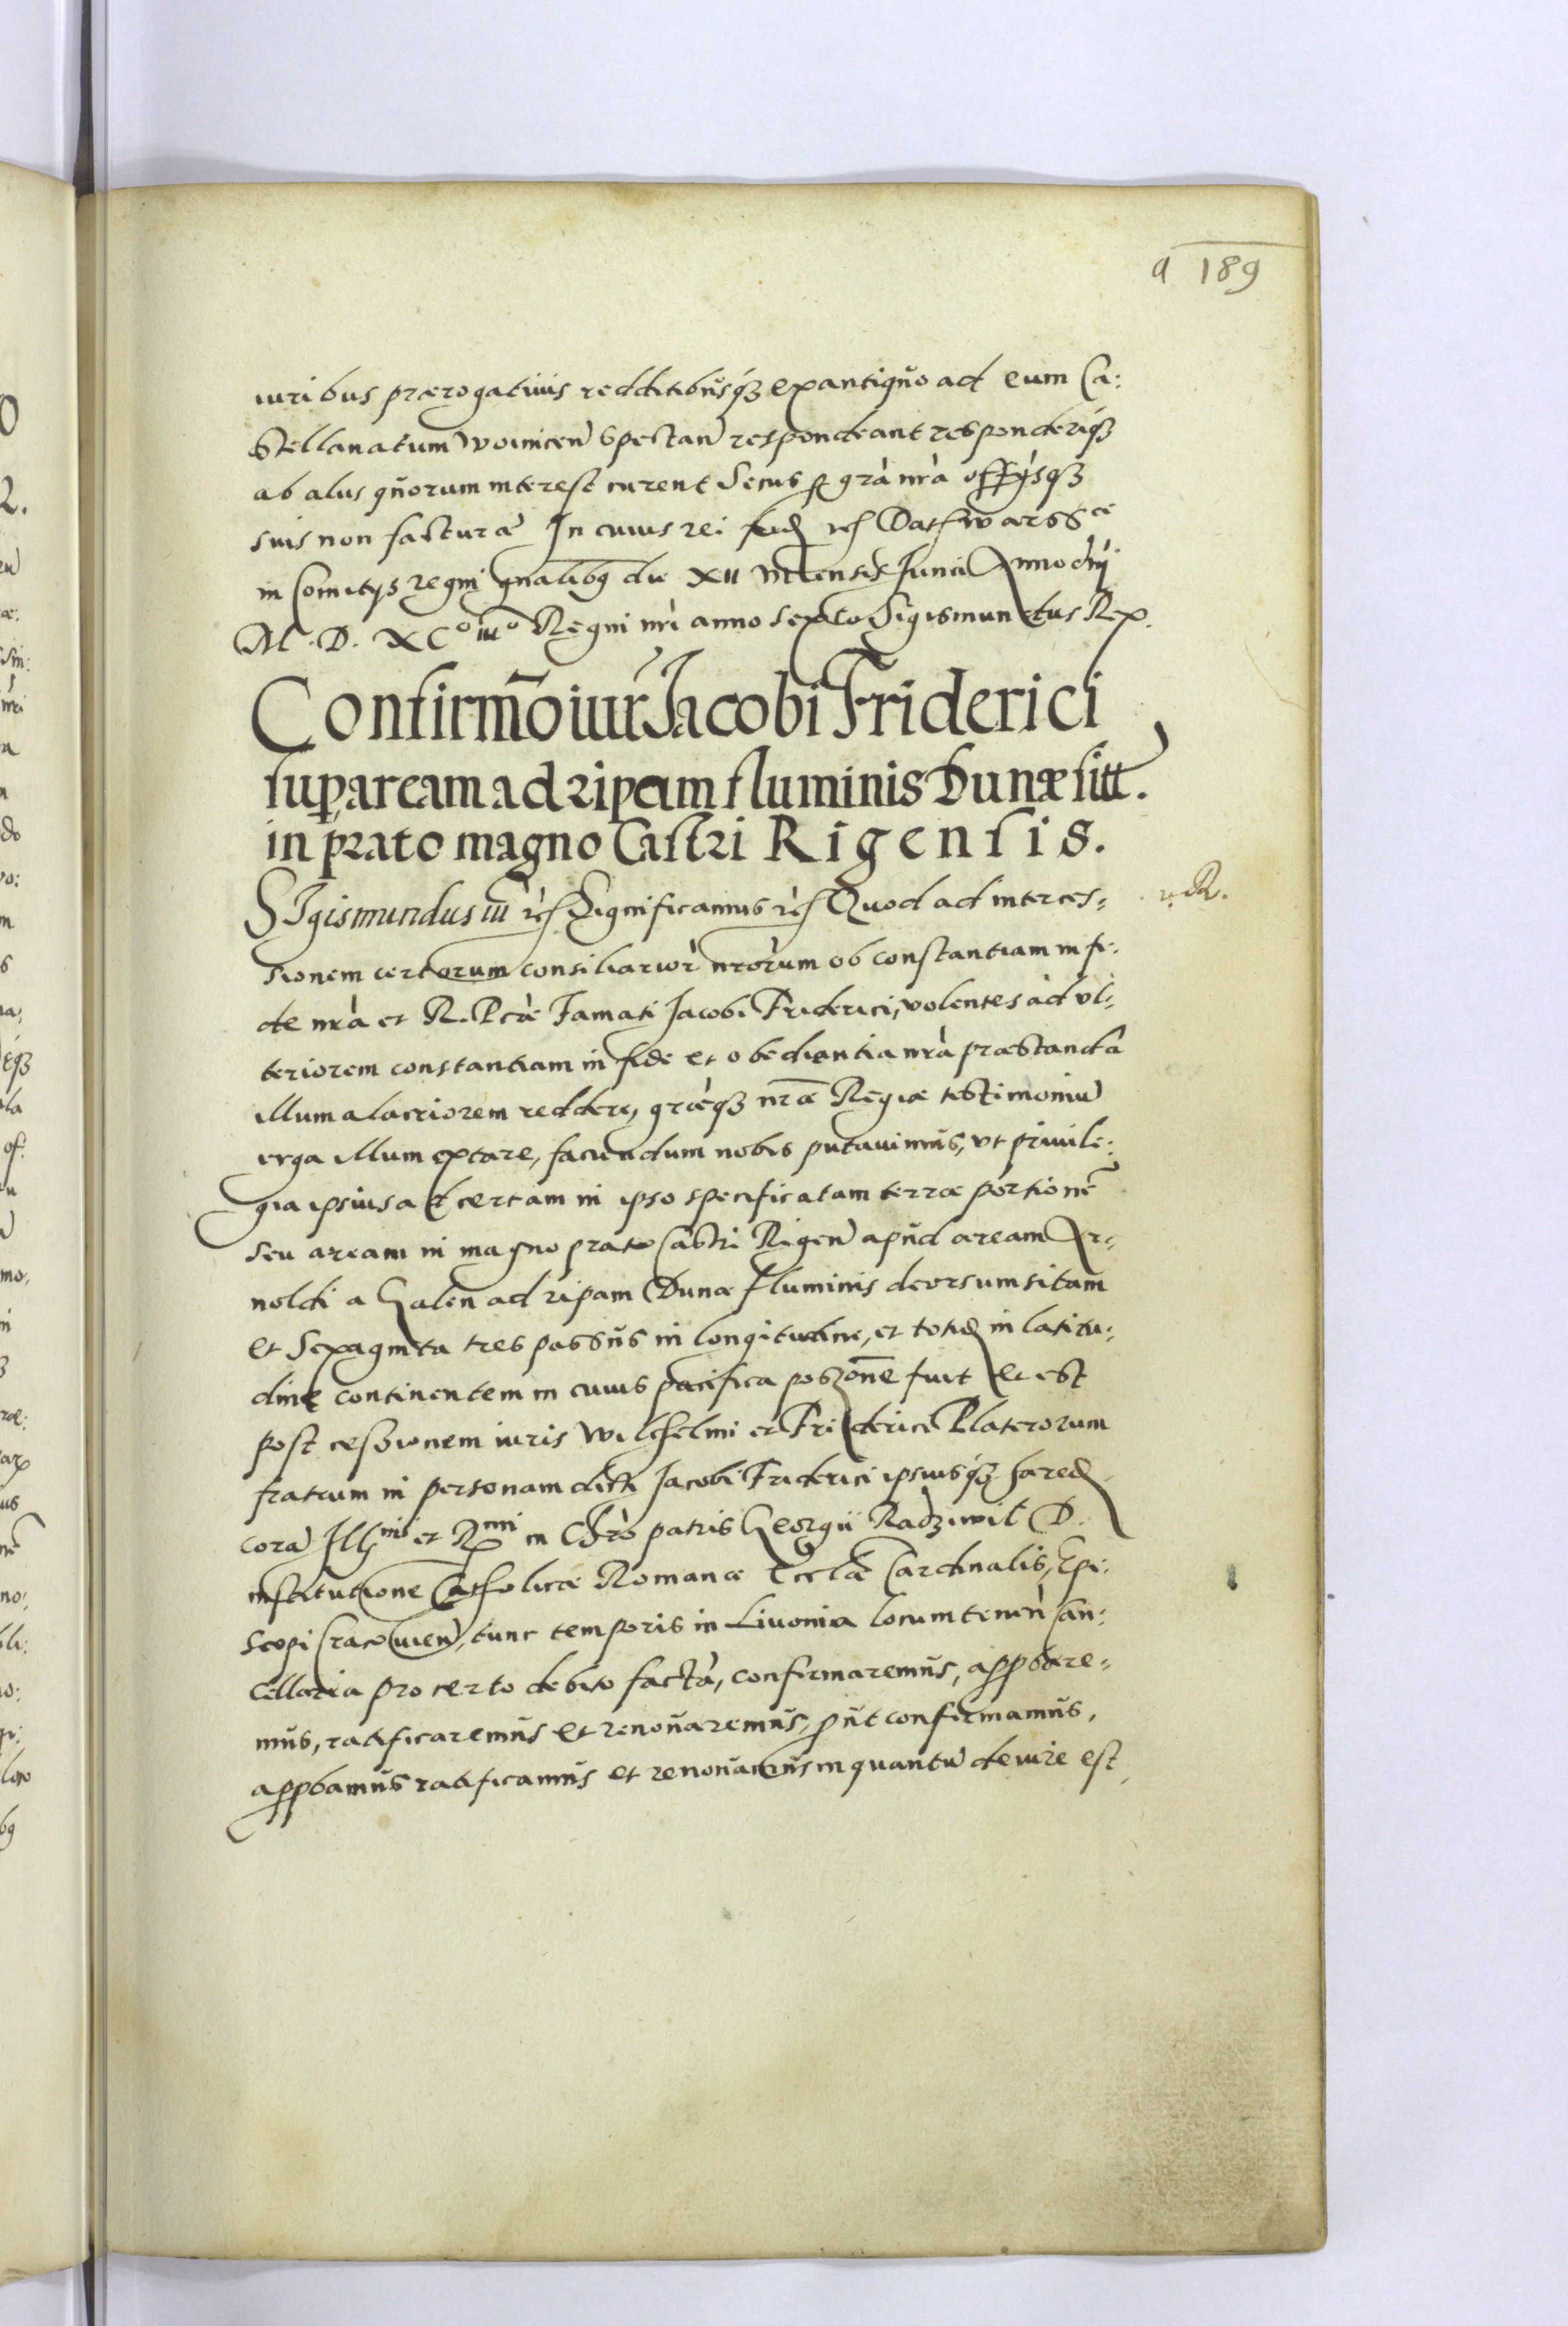 a 189
iuribus prærogativis redditibusq́ꝫ ex antiquo ad eum Ca:
stellanatum Woinicen̄ spectan̄ respondeant responderiq́ꝫ
ab aliis quorum interest curent Secus ꝑ grà nrà offysqꝫ
suis non facturæ In cuius rei fid ec̄ Dat Warssæ
in Comitys regni gnalibq die XII Mensis Junii Anno dnj
M. D. XCº iiiº Regni nri anno sexto Sigismundus Rex.
Confirmō iur̄ Jacobi Friderici
sup aream ad ripam fluminis Dunæ sitt.
in prato magno Castri Rigensis.
SIgismundus iii rēx Significamus ec̄ Quod ad interces- r. R.
sionem certorum consiliarior̀ nrorum ob constantiam in fi:
de nrà et R. P. erà Famati Jacobi Friderici, volentes ad vl-
teriorem constantiam in fide et obedientia nrà præstanda
illum alacriorem reddere, græqꝫ nræ Regiæ testimoniū
erga illum extare, faciendum nobis putavimus, ut privile:
gia ipsius ad certam in ipso specificatam terræ portionē
seu aream in magno prato Castri Rigen̄ apud aream Ar-
noldi a Halen ad ripam Dunæ fluminis deorsum sitam
et Sexaginta tres passus in longitudine, et totid in latitu:
dine continentem in cuius pacifica poszone fuit et est
post cessionem iuris Wilhelmi et Friderici Platerorum
fratrum in personam dicti Jacobi Friderici ipsiusq́ꝫ hæred
corā Illmi et Rmi in Chrò patris Georgii Radziwil D.
institutione Catholicæ Romanæ Ecclæ Cardinalis, Epi:
scopi Cracovien̄, tunc temporis in Livonia locumtenen̄ Can:
cellaria pro certo debito factà, confirmaremus, approbare-
mus, ratificaremus et renovaremus, prout confirmamus,
approbamus ratificamus et renovamus in quantū de iure est,